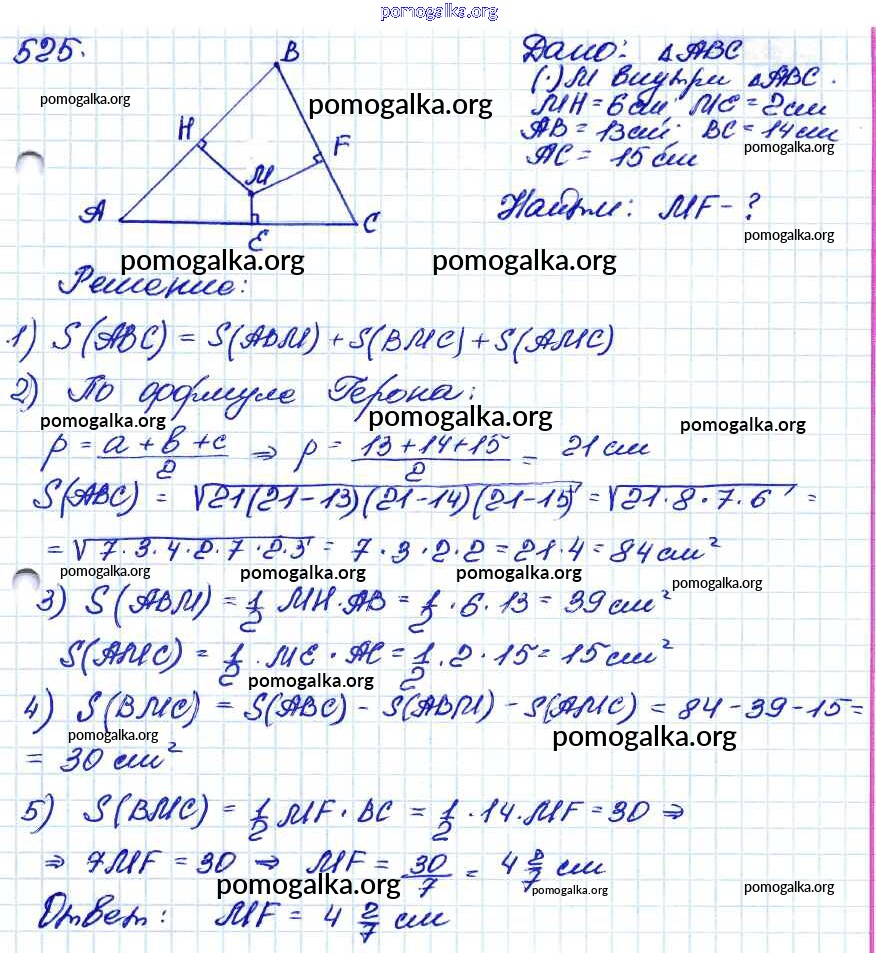 pomogalka.org
525.
B
H
F
M
A
E
C
Дано: △ABC
(·) M внутри △ABC.
MH = 6 см; ME = 2 см
AB = 13 см; BC = 14 см
AC = 15 см
Найти: MF - ?
pomogalka.org
pomogalka.org
pomogalka.org
pomogalka.org
pomogalka.org pomogalka.org
Решение:
1) S(ABC) = S(ABM) + S(BMC) + S(AMC)
2) По формуле Герона:
pomogalka.org pomogalka.org pomogalka.org
p = a + b + c / 2 ⇒ p = 13 + 14 + 15 / 2 = 21 см
S(ABC) = √21(21-13)(21-14)(21-15) = √21·8·7·6 =
= √7·3·4·2·7·2·3 = 7·3·2·2 = 21·4 = 84 см²
pomogalka.org pomogalka.org pomogalka.org pomogalka.org
3) S(ABM) = 1/2 MH·AB = 1/2·6·13 = 39 см²
S(AMC) = 1/2·ME·AC = 1/2·2·15 = 15 см²
pomogalka.org
4) S(BMC) = S(ABC) - S(ABM) - S(AMC) = 84 - 39 - 15 =
pomogalka.org pomogalka.org
= 30 см²
5) S(BMC) = 1/2 MF·BC = 1/2·14·MF = 30 ⇒
⇒ 7MF = 30 ⇒ MF = 30/7 = 4 2/7 см
pomogalka.org pomogalka.org pomogalka.org
Ответ: MF = 4 2/7 см